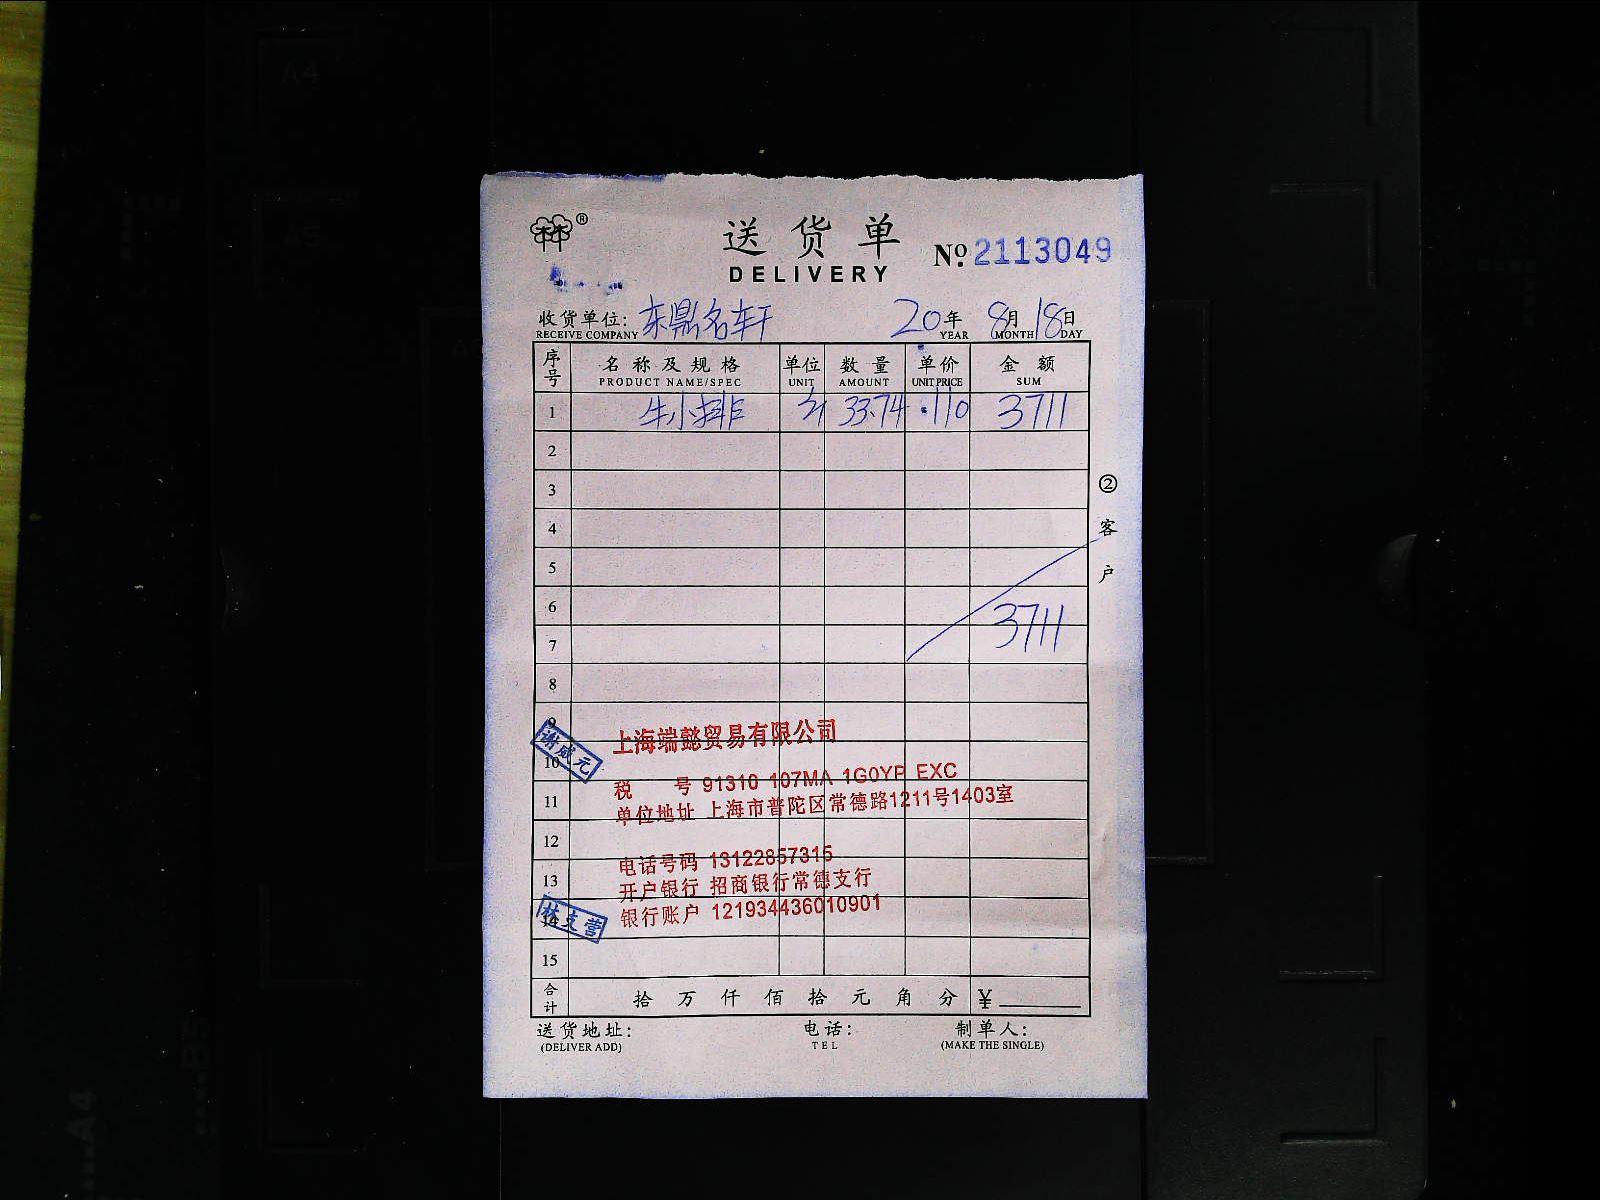 送货单
DELIVERY
® No. 2113049
收货单位: 东鼎名轩 20年 8月 18日
RECEIVE COMPANY YEAR MONTH DAY
序号 名称及规格 单位 数量 单价 金额
PRODUCT NAME/SPEC UNIT AMOUNT UNIT PRICE SUM
1 牛小排 斤 33.74 110 3711
2
3
② 客户
4
5
6
3711
7
8
9
上海端懿贸易有限公司
谢威元
10
税 号 91310 107MA 1G0YP EXC
11
单位地址 上海市普陀区常德路1211号1403室
12
电话号码 13122857315
13
开户银行 招商银行常德支行
14
林支营
银行账户 121934436010901
15
合计 拾 万 仟 佰 拾 元 角 分 ¥
送货地址: 电话: 制单人:
(DELIVER ADD) TEL (MAKE THE SINGLE)
A4
A4